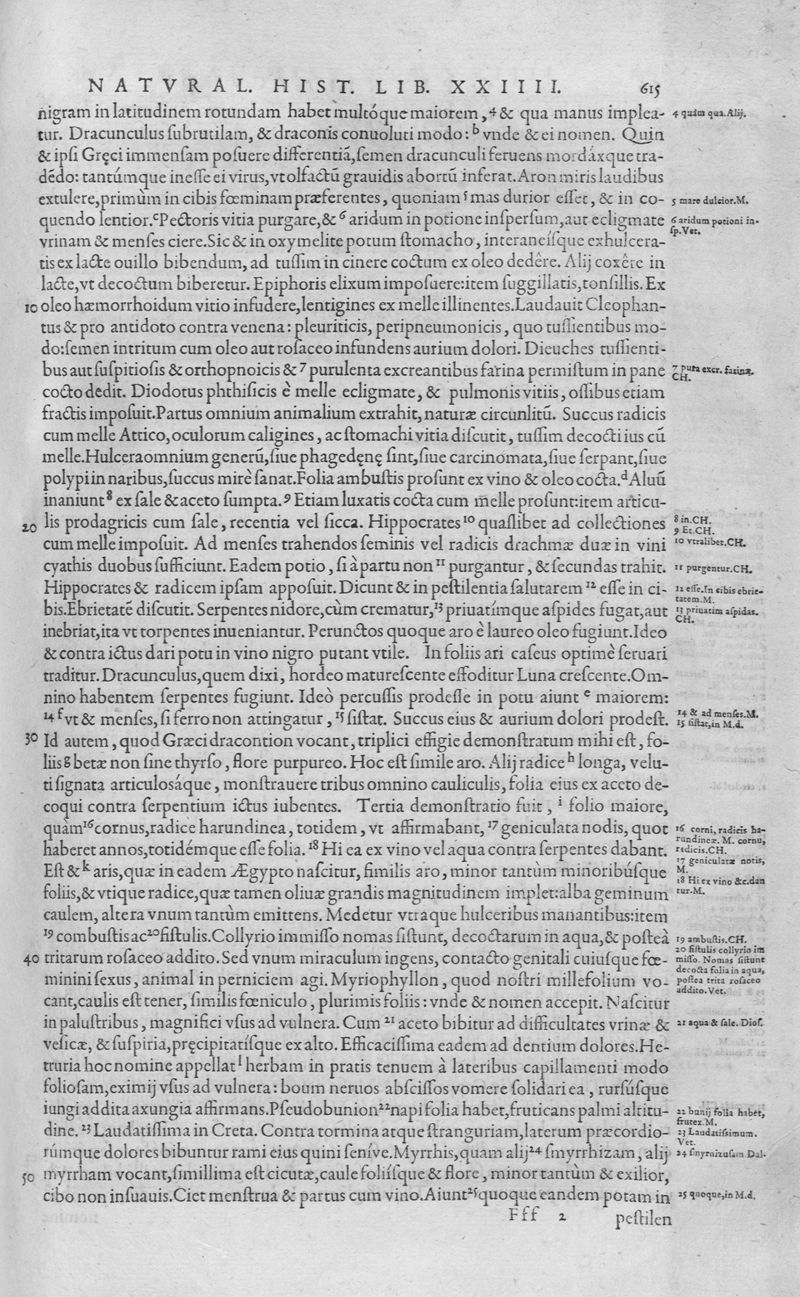 NATVRAL. HIST. LIB. XXIIII. 615
nigram in latitudinem rotundam habet multóque maiorem, ⁴ & qua manus implea-
tur. Dracunculus ſubrutilam, & draconis conuoluti modo: ᵇ vnde & ei nomen. Quin
& ipſi Gręci immenſam poſuere differentiã, ſemen dracunculi feruens mordáxque tra-
dẽdo: tantúmque ineſſe ei virus, vt olfactũ grauidis abortũ inferat. Aron miris laudibus
extulere, primùm in cibis fœminam præferentes, quoniam ⁵ mas durior eſſet, & in co-
quendo lentior. ᶜ Pectoris vitia purgare, & ⁶ aridum in potione inſperſum, aut ecligmate
vrinam & menſes ciere. Sic & in oxymelite potum ſtomacho, interaneiſque exhulcera-
tis ex lacte ouillo bibendum, ad tuſſim in cinere coctum ex oleo dedére. Alij coxêre in
lacte, vt decoctum biberetur. Epiphoris elixum impoſuere: item ſuggillatis, tonſillis. Ex
10 oleo hæmorrhoidum vitio infudere, lentigines ex melle illinentes. Laudauit Cleophan-
tus & pro antidoto contra venena: pleuriticis, peripneumonicis, quo tuſſientibus mo-
do: ſemen intritum cum oleo aut roſaceo infundens aurium dolori. Dieuches tuſſienti-
bus aut ſuſpirioſis & orthopnoicis & ⁷ purulenta excreantibus farina permiſtum in pane
cocto dedit. Diodotus phthiſicis è melle ecligmate, & pulmonis vitiis, oſſibus etiam
fractis impoſuit. Partus omnium animalium extrahit, naturæ circunlitũ. Succus radicis
cum melle Attico, oculorum caligines, ac ſtomachi vitia diſcutit, tuſſim decocti ius cũ
melle. Hulcera omnium generũ, ſiue phagedęnę ſint, ſiue carcinomata, ſiue ſerpant, ſiue
polypi in naribus, ſuccus mirè ſanat. Folia ambuſtis proſunt ex vino & oleo cocta. ᵈ Aluũ
inaniunt ⁸ ex ſale & aceto ſumpta. ⁹ Etiam luxatis cocta cum melle proſunt: item articu-
20 lis prodagricis cum ſale, recentia vel ſicca. Hippocrates ¹⁰ quaſlibet ad collectiones
cum melle impoſuit. Ad menſes trahendos ſeminis vel radicis drachmæ duæ in vini
cyathis duobus ſufficiunt. Eadem potio, ſi à partu non ¹¹ purgantur, & ſecundas trahit.
Hippocrates & radicem ipſam appoſuit. Dicunt & in peſtilentia ſalutarem ¹² eſſe in ci-
bis. Ebrietatẽ diſcutit. Serpentes nidore, cùm crematur, ¹³ priuatímque aſpides fugat, aut
inebriat, ita vt torpentes inueniantur. Perunctos quoque aro è laureo oleo fugiunt. Ideo
& contra ictus dari potu in vino nigro putant vtile. In foliis ari caſeus optimè ſeruari
traditur. Dracunculus, quem dixi, hordeo matureſcente effoditur Luna creſcente. Om-
nino habentem ſerpentes fugiunt. Ideò percuſſis prodeſſe in potu aiunt ᵉ maiorem:
¹⁴ ᶠ vt & menſes, ſi ferro non attingatur, ¹⁵ ſiſtat. Succus eius & aurium dolori prodeſt.
30 Id autem, quod Græci dracontion vocant, triplici effigie demonſtratum mihi eſt, fo-
liis ᵍ betæ non ſine thyrſo, flore purpureo. Hoc eſt ſimile aro. Alij radice ʰ longa, velu-
ti ſignata articulosáque, monſtrauere tribus omnino cauliculis, folia eius ex aceto de-
coqui contra ſerpentium ictus iubentes. Tertia demonſtratio fuit, ⁱ folio maiore,
quàm ¹⁶ cornus, radice harundinea, totidem, vt affirmabant, ¹⁷ geniculata nodis, quot
haberet annos, totidémque eſſe folia. ¹⁸ Hi ea ex vino vel aqua contra ſerpentes dabant.
Eſt & ᵏ aris, quæ in eadem Ægypto naſcitur, ſimilis aro, minor tantùm minoribúſque
foliis, & vtique radice, quæ tamen oliuæ grandis magnitudinem implet: alba geminum
caulem, altera vnum tantùm emittens. Medetur vtraque hulceribus manantibus: item
¹⁹ combuſtis ac ²⁰ fiſtulis. Collyrio immiſſo nomas ſiſtunt, decoctarum in aqua, & poſteà
40 tritarum roſaceo addito. Sed vnum miraculum ingens, contacto genitali cuiuſque fœ-
minini ſexus, animal in perniciem agi. Myriophyllon, quod noſtri millefolium vo-
cant, caulis eſt tener, ſimilis fœniculo, plurimis foliis: vnde & nomen accepit. Naſcitur
in paluſtribus, magnifici vſus ad vulnera. Cum ²¹ aceto bibitur ad difficultates vrinæ &
veſicæ, & ſuſpiria, pręcipitatiſque ex alto. Efficaciſſima eadem ad dentium dolores. He-
truria hoc nomine appellat ˡ herbam in pratis tenuem à lateribus capillamenti modo
folioſam, eximij vſus ad vulnera: boum neruos abſciſſos vomere ſolidari ea, rurſúſque
iungi addita axungia affirmans. Pſeudobunion ²² napi folia habet, fruticans palmi altitu-
dine. ²³ Laudatiſſima in Creta. Contra tormina atque ſtranguriam, laterum præcordio-
rúmque dolores bibuntur rami eius quini ſeníve. Myrrhis, quam alij ²⁴ ſmyrrhizam, alij
50 myrrham vocant, ſimillima eſt cicutæ, caule foliíſque & flore, minor tantùm & exilior,
cibo non inſuauis. Ciet menſtrua & partus cum vino. Aiunt ²⁵ quoque eandem potam in
Fff 2 peſtilen
4 quàm qua. Alij.
5 mare dulcior. M.
6 aridum potioni in-
ſp. Vet.
7 Pura excr. farina.
CH.
8 in. CH.
9 Et. CH.
10 vtralibet. CH.
11 purgentur. CH.
12 eſſe. In cibis ebrie-
tatem. M.
13 priuatim aſpidas.
CH.
14 & ad menſes. M.
15 ſiſtat, in M. d.
16 corni, radicis ha-
rundineæ. M. cornu,
radicis. CH.
17 geniculatæ notis,
M.
18 Hi ex vino &c. dan
tur. M.
19 ambuſtis. CH.
20 fiſtulis collyrio im
miſſo. Nomas ſiſtunt
decocta folia in aqua,
poſtea trita roſaceo
addito. Vet.
21 aqua & ſale. Dioſ.
22 bunij folia habet,
frutex. M.
23 Laudatiſsimum.
Vet.
24 ſmyrnizuſam. Dal.
25 quoque, in M. d.